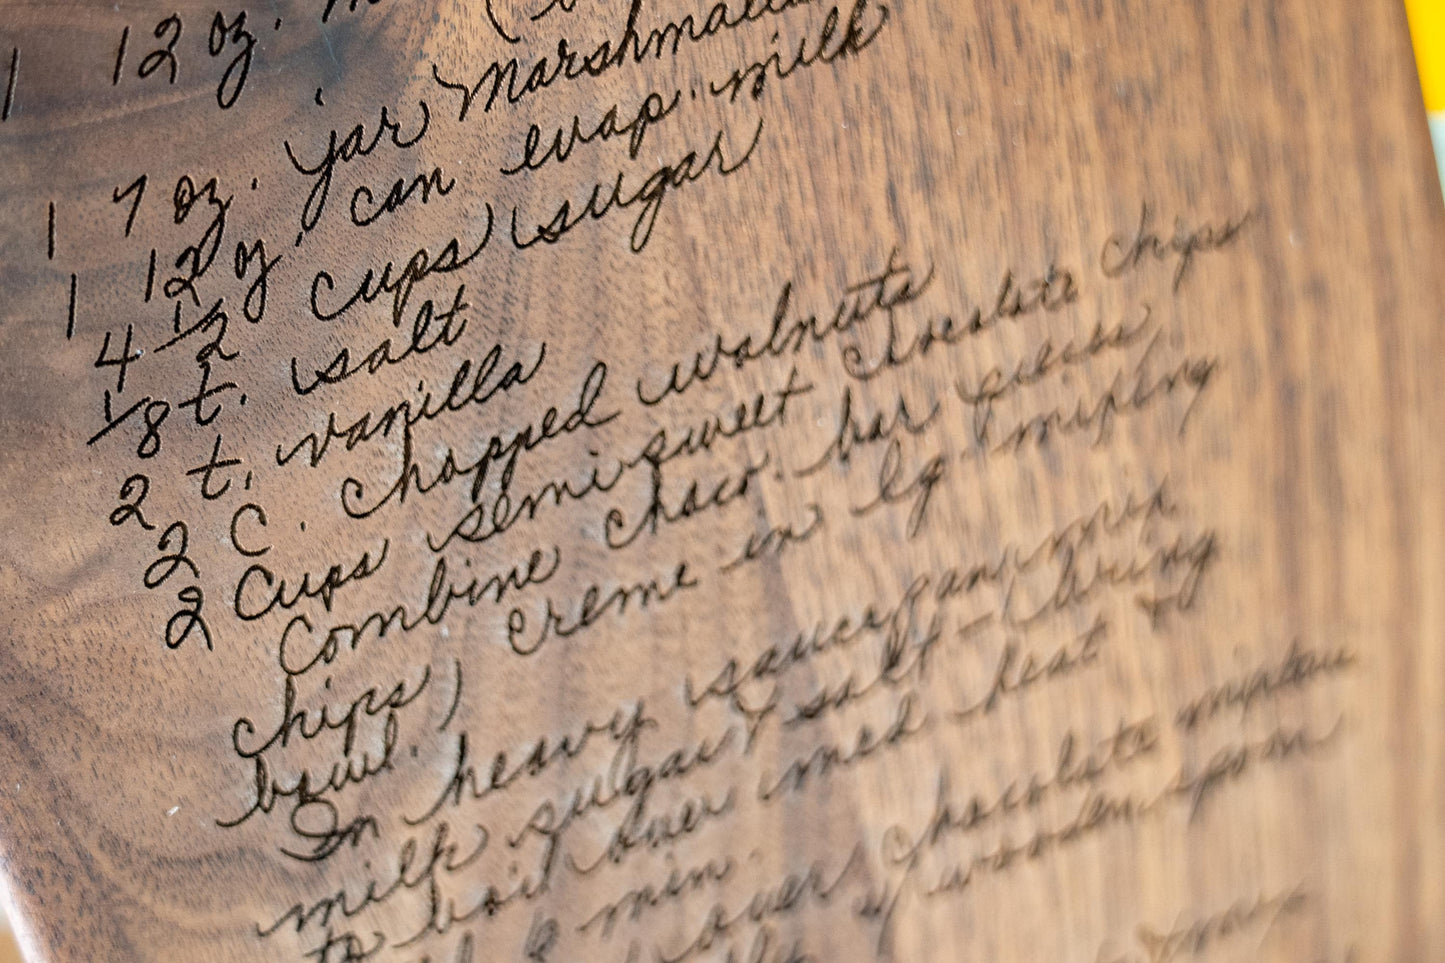 1 12 oz.
1 7 oz. jar Marshmallow
1 12 oz. can evap. milk
4 1/2 cups sugar
1/8 t. salt
2 t. vanilla
2 C. chopped walnuts
2 Cups semi sweet chocolate chips
Combine choco. bar pieces
chips, creme in lg mixing
bowl.
In heavy sauce pan mix
milk sugar & salt - bring
to boil over med heat &
6 min.
over chocolate mixture
w/ wooden spoon